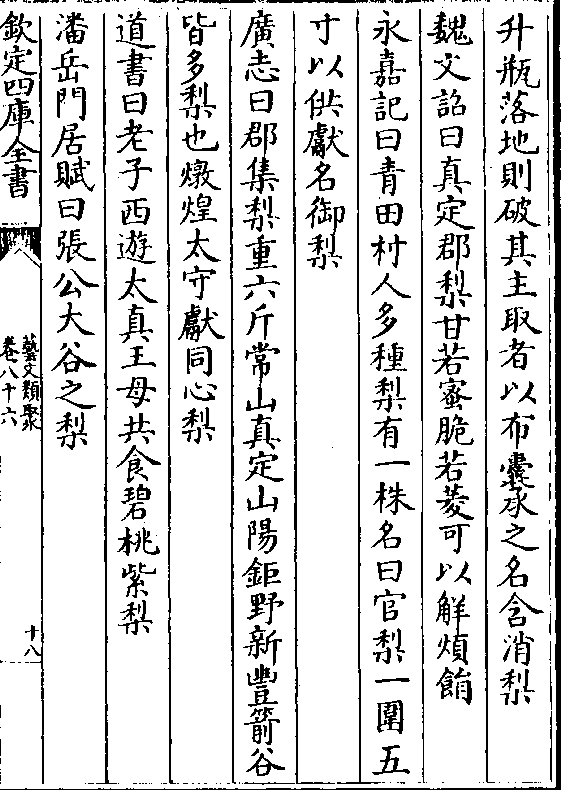 升瓶落地則破其主取者以布囊承之名含消梨
魏文詔曰真定郡梨甘若蜜脆若菱可以解煩餇
永嘉記曰青田村人多種梨有一株名曰官梨一圍五
寸以供獻名御梨
廣志曰郡集梨重六斤常山真定山陽鉅野新豐箭谷
皆多梨也燉煌太守獻同心梨
道書曰老子西遊太真王母共食碧桃紫梨
潘岳門居賦曰張公大谷之梨
欽定四庫全書
藝文類聚
卷八十六
十八